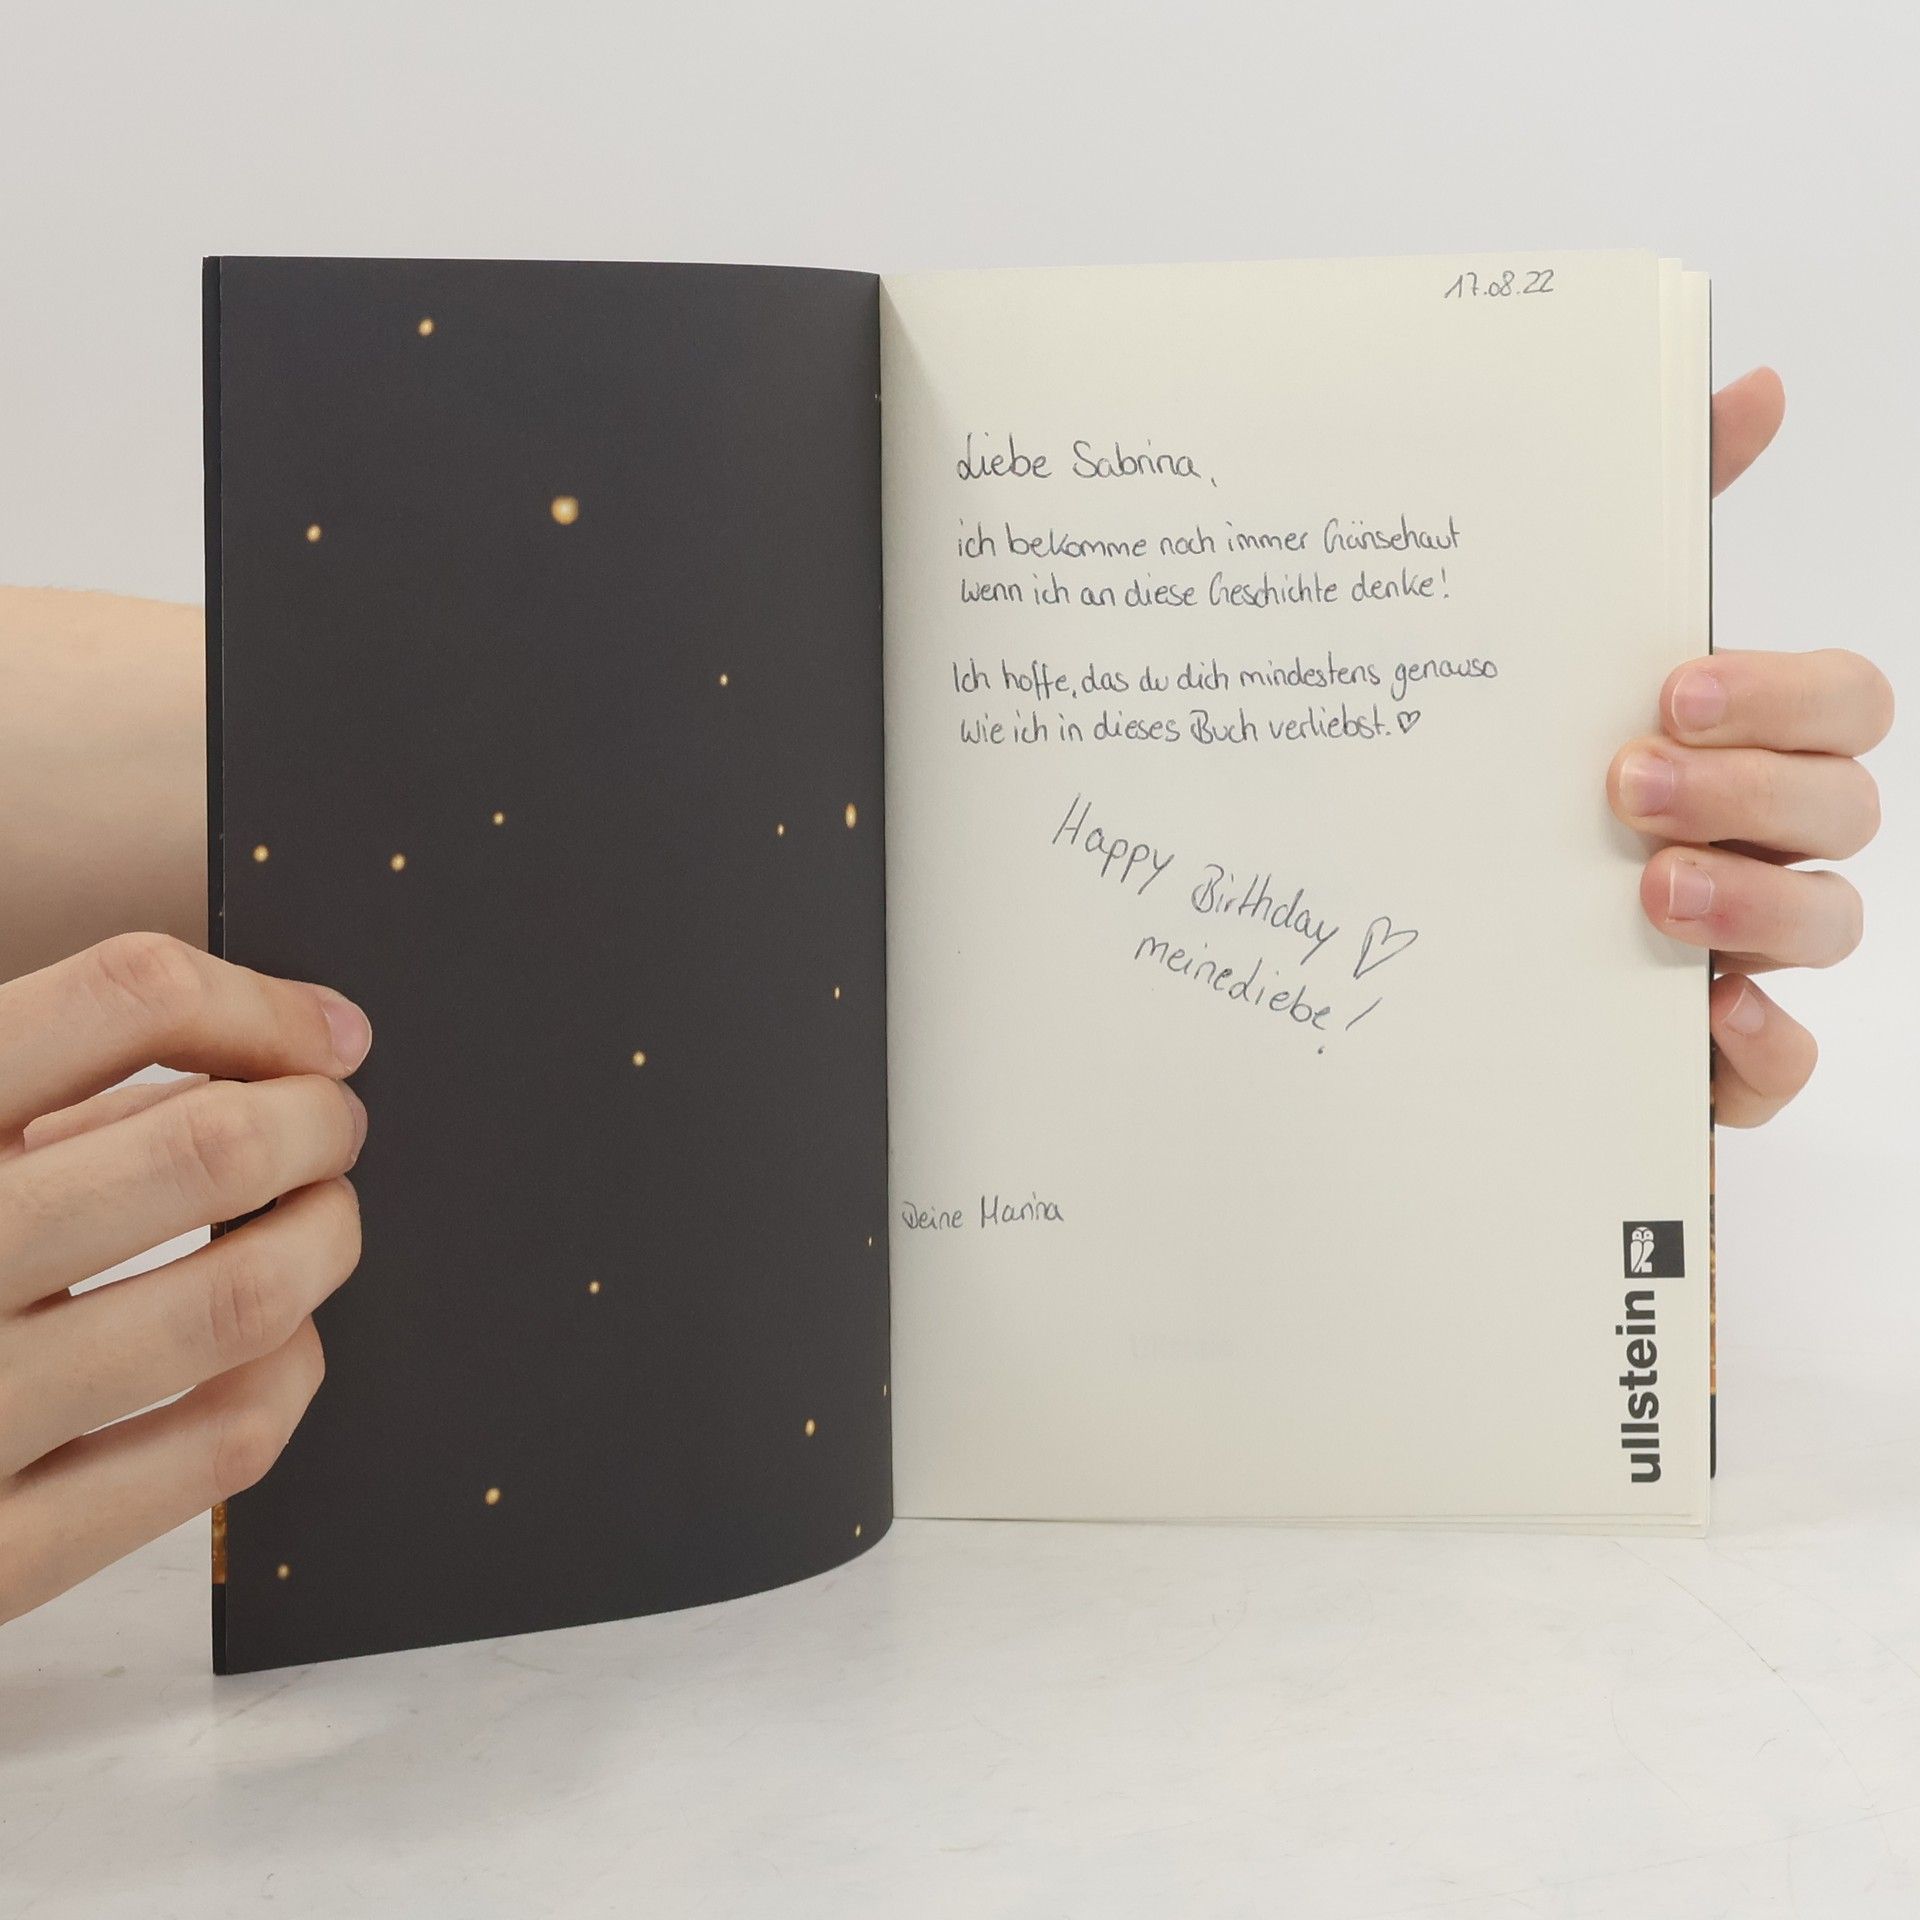 17.08.22
Liebe Sabrina,
ich bekomme noch immer Gänsehaut
wenn ich an diese Geschichte denke!
Ich hoffe, das du dich mindestens genauso
wie ich in dieses Buch verliebst. ♡
Happy Birthday ♡
meine Liebe!
Deine Marina
ullstein